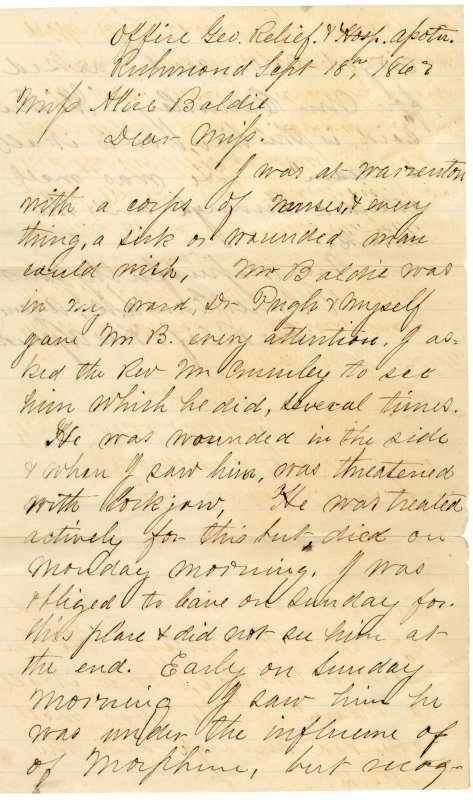 Office Geo. Relief. & Hosp. Asso.
Richmond Sept 18th, 1862
Miss Alice Baldie
Dear Miss.
I was at Warrenton
with a corps of nurses, & every
thing, a sick or wounded man
could wish. Mr Baldie was
in my ward, Dr Pugh & myself
gave Mr B. every attention. I as-
ked the Rev Mr Crumley to see
him which he did, several times.
He was wounded in the side
& when I saw him, was threatened
with lock jaw, He was treated
actively for this but died on
Monday morning. I was
obliged to leave on Sunday for
this place & did not see him at
the end. Early on Sunday
morning I saw him he
was under the influence of
of Morphine, but recog-